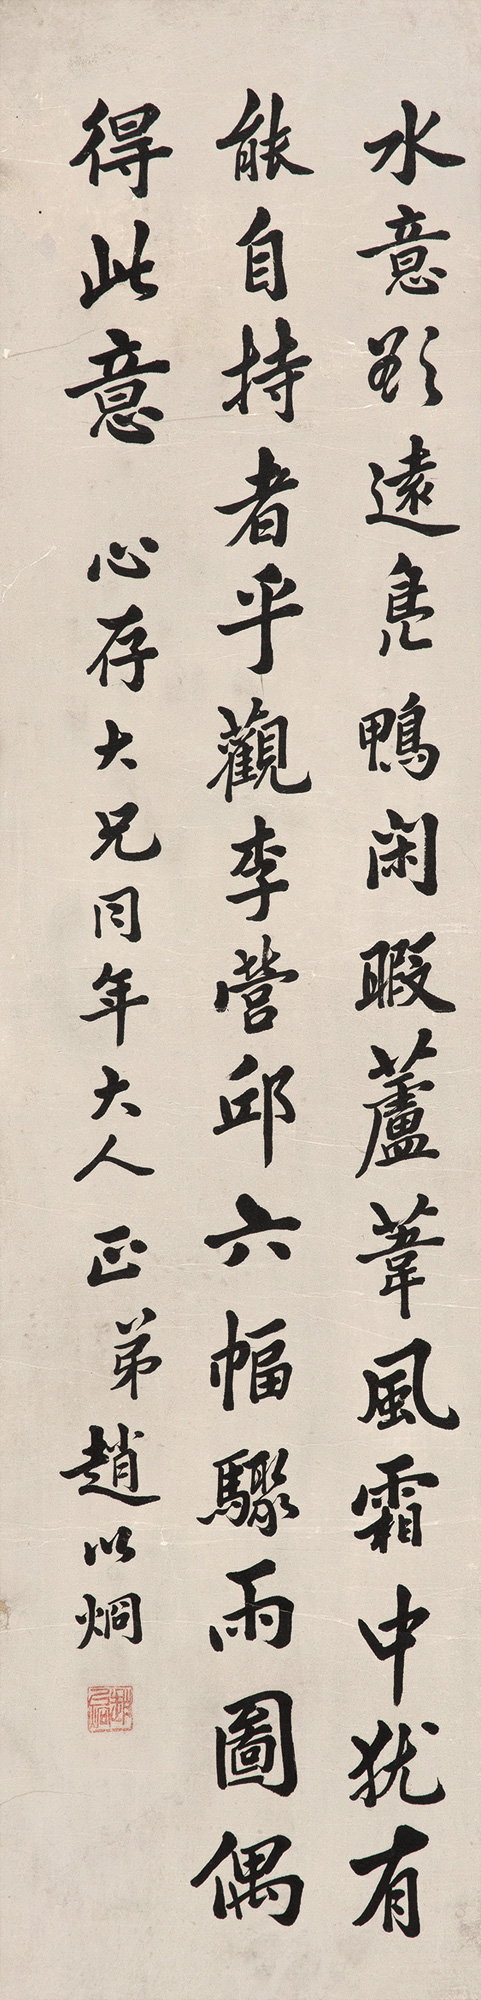 水意欲遠鳧鴨閑暇蘆葦風霜中犹有
能自持者乎觀李營邱六幅驟雨圖偶
得此意 心存大兄同年大人 正 弟趙以炯